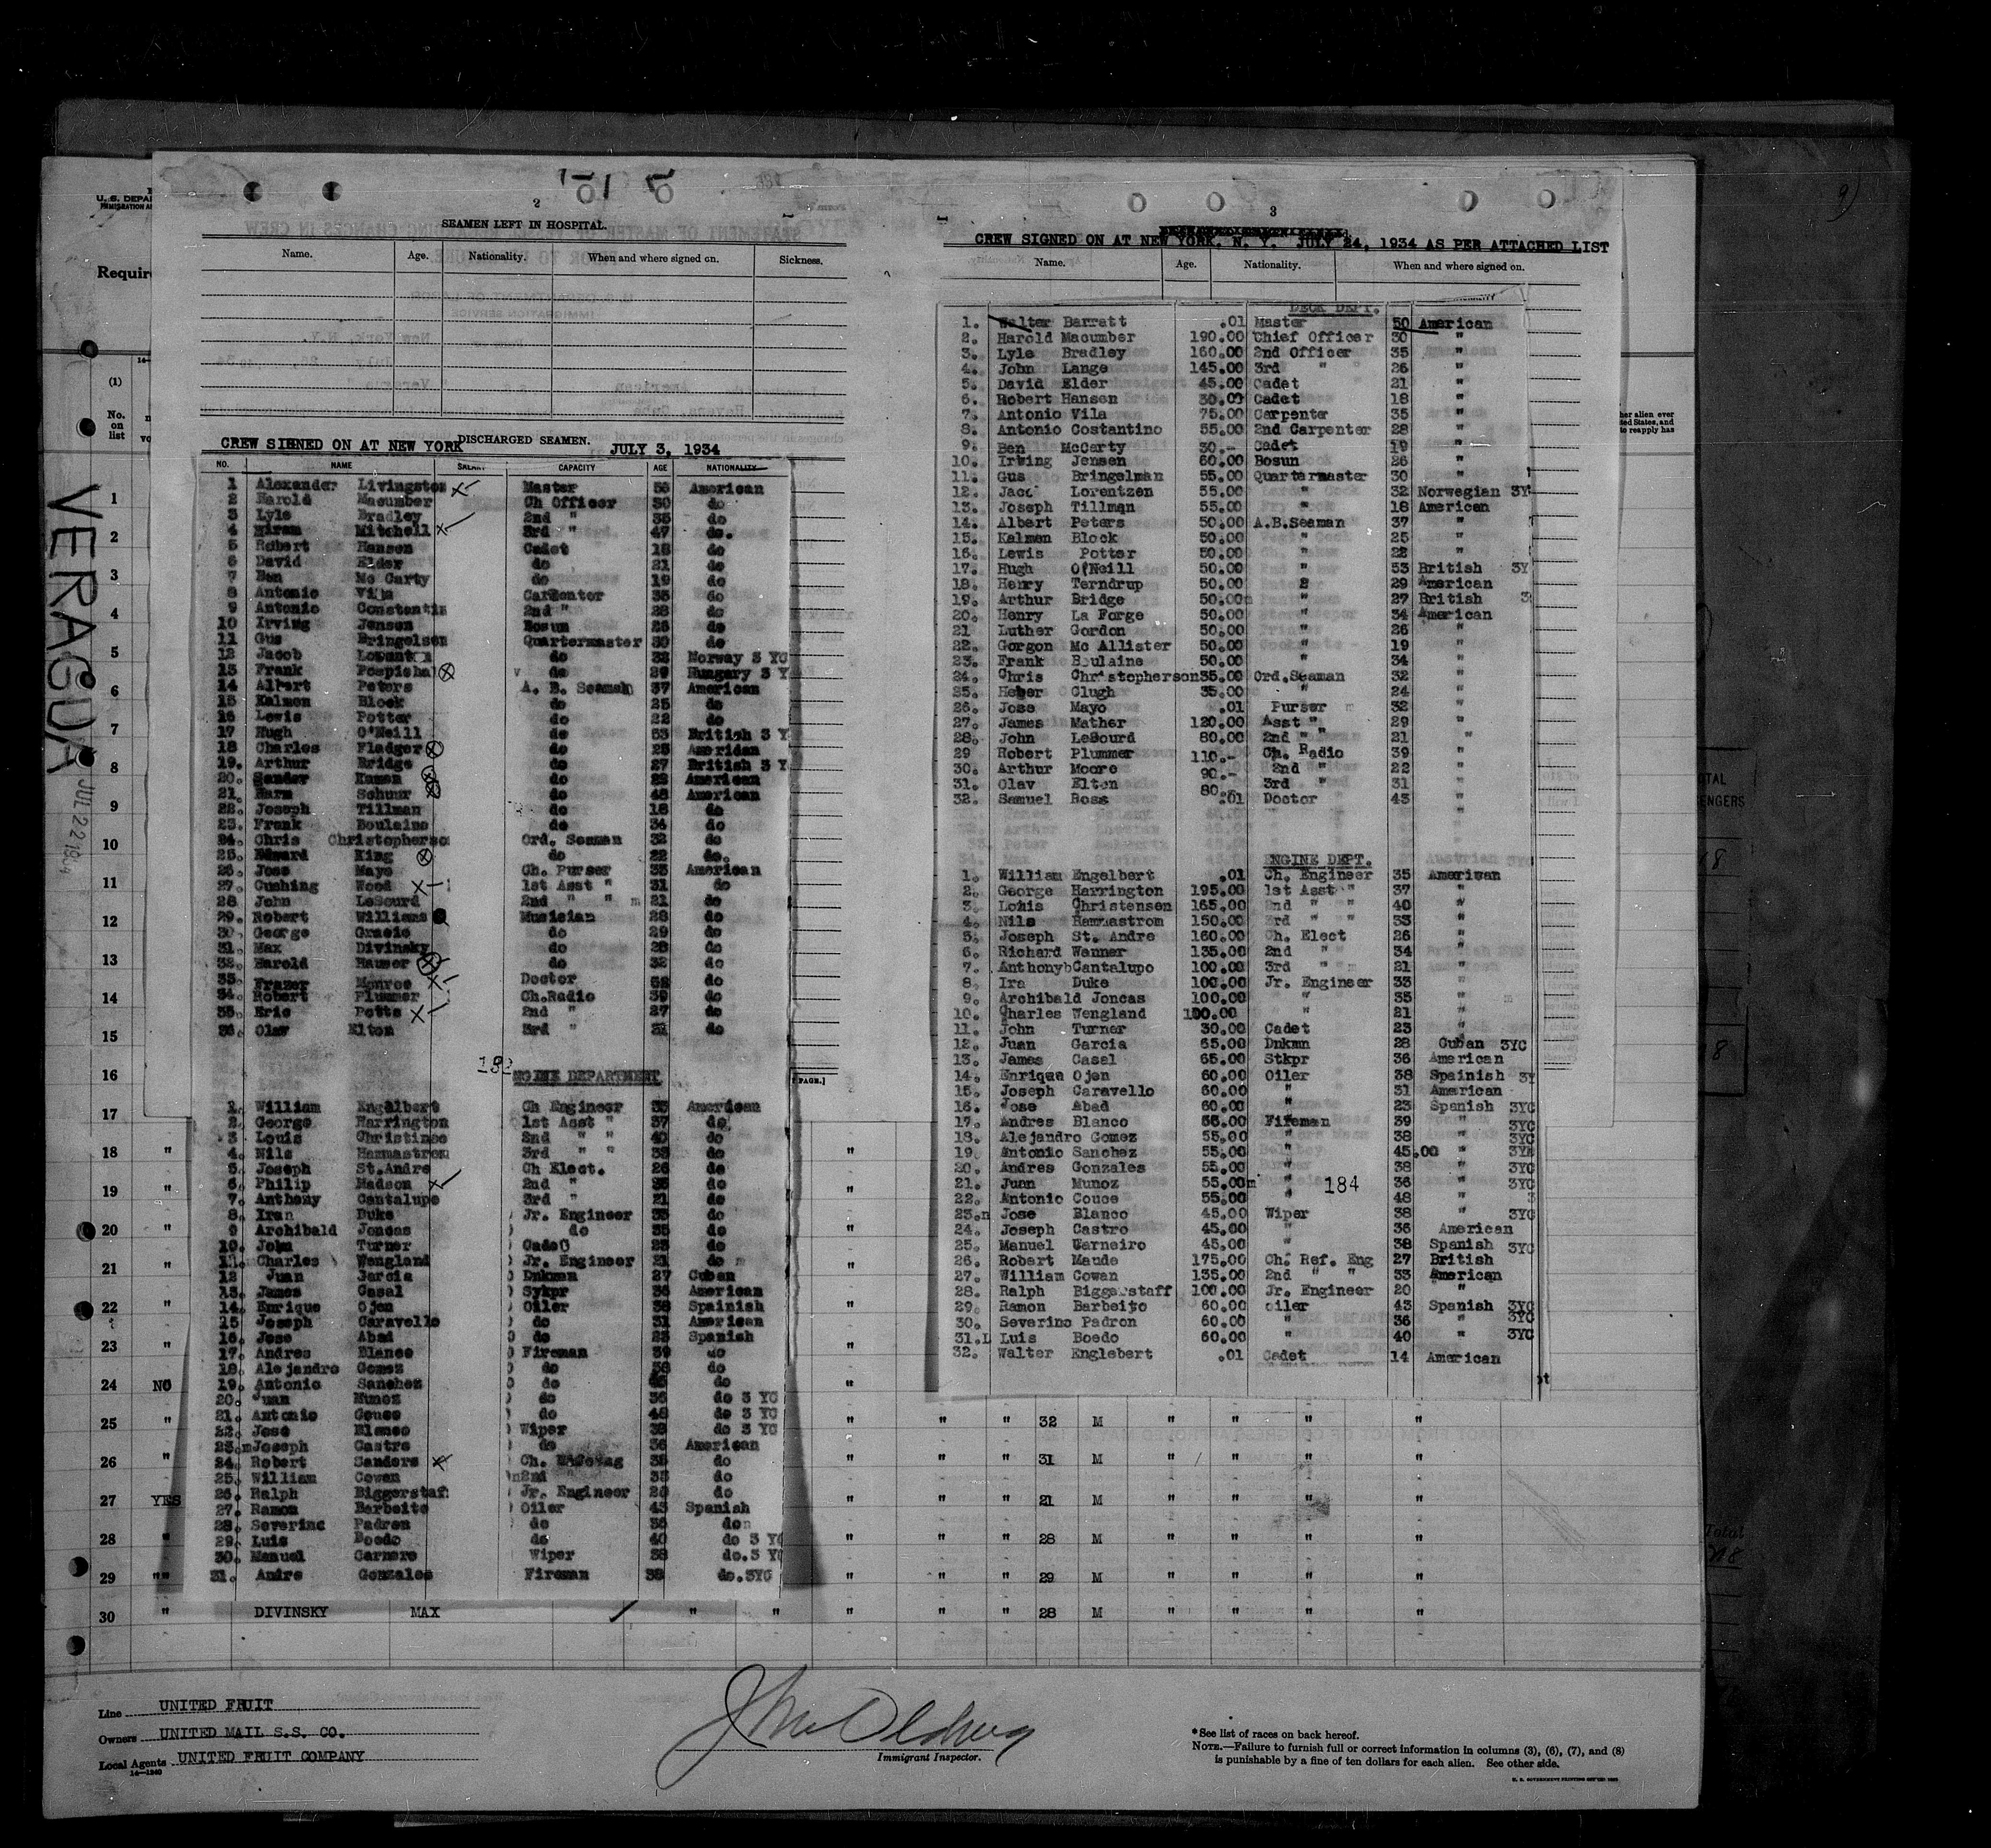 2
SEAMEN LEFT IN HOSPITAL.
Name. Age. Nationality. When and where signed on. Sickness.
DISCHARGED SEAMEN.
CREW SIGNED ON AT NEW YORK JULY 3, 1934
NO. NAME SALARY CAPACITY AGE NATIONALITY
1 Alexander Livingston Master American
2 Harold Macumber Ch Officer 30 do
3 Lyle Bradley 2nd " 35 do
4 Hiram Mitchell 3rd " 47 do.
5 Robert Hansen Cadet 18 do
6 David Elder do 21 do
7 Ben Mc Carty do 19 do
8 Antonio Vila Carpenter 35 do
9 Antonio Constantin 2nd " 28 do
10 Irving Jensen Bosun 26 do
11 Gus Bringelsen Quartermaster 30 do
12 Jacob do 32 Norway 3 YC
13 Frank Pospichal do 29 Hungary 3 Y
14 Albert Peters A. B. Seaman 37 American
15 Kalmen Block do 25 do
16 Lewis Potter do 22 do
17 Hugh O'Neill do 53 British 3 Y
18 Charles Fladger do 25 American
19. Arthur Bridge do 27 British 3 Y
20. Sander Kaman do 22 American
21. Harm Schuur do 48 American
22. Joseph Tillman do 18 do
23. Frank Boulaine do 34 do
24. Chris Christopherso Ord. Seaman 32 do
25. Edward King do 22 do.
26. Jose Mayo Ch. Purser 33 American
27. Cushing Wood 1st Asst " 31 do
28 John LeSourd 2nd " " m 21 do
29. Robert Williams Musician 28 do
30. George Gracie do 29 do
31. Max Divinsky do 28 do
32. Harold Hauser do 32 do
33. Frazer Monroe Doctor do
34. Robert Plummer Ch.Radio 39 do
35. Eric Potts 2nd " 27 do
36. Olav Elton 3rd " 31 do
182
ENGINE DEPARTMENT
1. William Engelbert Ch Engineer 35 American
2. George Harrington 1st Asst " 37 do
3 Louis Christinse 2nd " " 40 do
4. Nils Hammastrom 3rd " " 33 do
5. Joseph St.Andre Ch Elect. 26 do
6. Philip Madson 2nd " 35 do
7. Anthony Cantalupo 3rd " 21 do
8. Iran Duke Jr. Engineer 33 do
9 Archibald Joncas do 35 do
10. John Turner Cadet 23 do
11. Charles Wengland Jr. Engineer 21 do
12 Juan Jarcia Dnkman 27 Cuban
13. James Casal Sykpr 36 American
14. Enrique Ojen Oiler 38 Spainish
15 Joseph Caravello do 31 American
16. Jose Abad do 23 Spanish
17. Andres Blanco Fireman 39 do
18. Alejandro Gomez do 38 do
19. Antonio Sanchez do 45 do
20. Juan Munoz do 36 do 3 YC
21. Antonio Couce do 48 do 3 YC
22. Jose Blanco Wiper 38 do 3 YC
23.mJoseph Castro do 36 American
24. Robert Sanders Ch. 35 do
25. William Cowan 2nd " 33 do
26. Ralph Biggerstaff Jr. Engineer 20 do
27. Ramon Barbeito Oiler 43 Spanish
28. Severino Padron do 36 do
29. Luis Boedo do 40 do 3 YC
30. Manuel Carnero Wiper 38 do.3 YC
31. Andre Gonzales Fireman 38 do.3YC
3
CREW SIGNED ON AT NEW YORK, N. Y. JULY 24, 1934 AS PER ATTACHED LIST
Name. Age. Nationality. When and where signed on.
DECK DEPT.
1. Walter Barrett .01 Master 50 American
2. Harold Macumber 190.00 Chief Officer 30 "
3. Lyle Bradley 160.00 2nd Officer 35 "
4. John Lange 145.00 3rd " 26 "
5. David Elder 45.00 Cadet 21 "
6. Robert Hansen 30.00 Cadet 18 "
7. Antonio Vila 75.00 Carpenter 35 "
8. Antonio Costantino 55.00 2nd Carpenter 28 "
9. Ben McCarty 30.- Cadet 19 "
10. Irving Jensen 60.00 Bosun 26 "
11. Gus Bringelman 55.00 Quartermaster 30 "
12. Jacc Lorentzen 55.00 " 32 Norwegian 3Y
13. Joseph Tillman 55.00 " 18 American
14. Albert Peters 50.00 A.B.Seaman 37 "
15. Kalman Block 50.00 " 25 "
16. Lewis Potter 50.00 " 22 "
17. Hugh O'Neill 50.00 " 53 British 3Y
18. Henry Terndrup 50.00 " 29 American
19. Arthur Bridge 50.00 " 27 British 3
20. Henry La Forge 50.00 " 34 American
21 Luther Gordon 50.00 " 26 "
22. Gorgon Mc Allister 50.00 " 19 "
23. Frank Boulaine 50.00 " 34 "
24. Chris Christopherson35.00 Ord.Seaman 32 "
25. Heber Clugh 35.00 " 24 "
26. Jose Mayo .01 Purser 32 "
27. James Mather 120.00 Asst " 29 "
28. John LeSourd 80.00 2nd " " 21 "
29 Robert Plummer 110.- Ch. Radio 39 "
30. Arthur Moore 90.- 2nd " 22 "
31. Olav Elton 80.- 3rd " 31 "
32. Samuel Boss .01 Doctor 43 "
ENGINE DEPT.
1. William Engelbert .01 Ch. Engineer 35 American
2. George Harrington 195.00 1st Asst " 37 "
3. Louis Christensen 165.00 2nd " " 40 "
4. Nils Hammastrom 150.00 3rd " " 33 "
5. Joseph St. Andre 160.00 Ch. Elect 26 "
6. Richard Wanner 135.00 2nd " 34 "
7. AnthonybCantalupo 100.00 3rd " 21 "
8. Ira Duke 100.00 Jr. Engineer 33 "
9. Archibald Joncas 100.00 " 35 "
10. Charles Wengland 100.00 " 21 "
11. John Turner 30.00 Cadet 23 "
12. Juan Garcia 65.00 Dnkmn 28 Cuban 3YC
13. James Casal 65.00 Stkpr 36 American
14. Enrique Ojen 60.00 Oiler 38 Spainish 3Y
15. Joseph Caravello 60.00 " 31 American
16. Jose Abad 60.00 " 23 Spanish 3YC
17. Andres Blanco 55.00 Fireman 39 " 3YC
18. Alejandro Gomez 55.00 " 38 " 3YC
19. Antonio Sanchez 55.00 " 45.00 " 3YC
20. Andres Gonzales 55.00 " 38 " 3YC
21. Juan Munoz 55.00 " 36 " 3YC
184
22. Antonio Couce 55.00 " 48 " 3
23. Jose Blanco 45.00 Wiper 38 " 3YC
24. Joseph Castro 45.00 " 36 American
25. Manuel Carneiro 45.00 " 38 Spanish 3YC
26. Robert Maude 175.00 Ch. Ref. Eng 27 British
27. William Cowan 135.00 2nd " " 33 American
28. Ralph Biggerstaff 100.00 Jr. Engineer 20 "
29. Ramon Barbeito 60.00 oiler 43 Spanish 3YC
30. Severino Padron 60.00 " 36 " 3YC
31. Luis Boedo 60.00 " 40 " 3YC
32. Walter Englebert .01 Cadet 14 American
U. S. DEPAR
IMMIGRATION A
Require
(1)
No. on list
VERAGUA
JUL 22 1934
1
2
3
4
5
6
7
8
9
10
11
12
13
14
15
16
17
18 " "
19 " "
20 " "
21 " "
22 " "
23 " "
24 NO "
25 " " " " 32 M " " " "
26 " " " " 31 M " " " "
27 YES " " " 21 M " " " "
28 " " " " 28 M " " " "
29 "" " " " 29 M " " " "
30 " DIVINSKY MAX " " " " " 28 M " " " "
PAGE.]
Line UNITED FRUIT
Owners UNITED MAIL S.S. CO.
Local Agents UNITED FRUIT COMPANY
14—1240
Immigrant Inspector.
*See list of races on back hereof.
NOTE.—Failure to furnish full or correct information in columns (3), (6), (7), and (8)
is punishable by a fine of ten dollars for each alien. See other side.